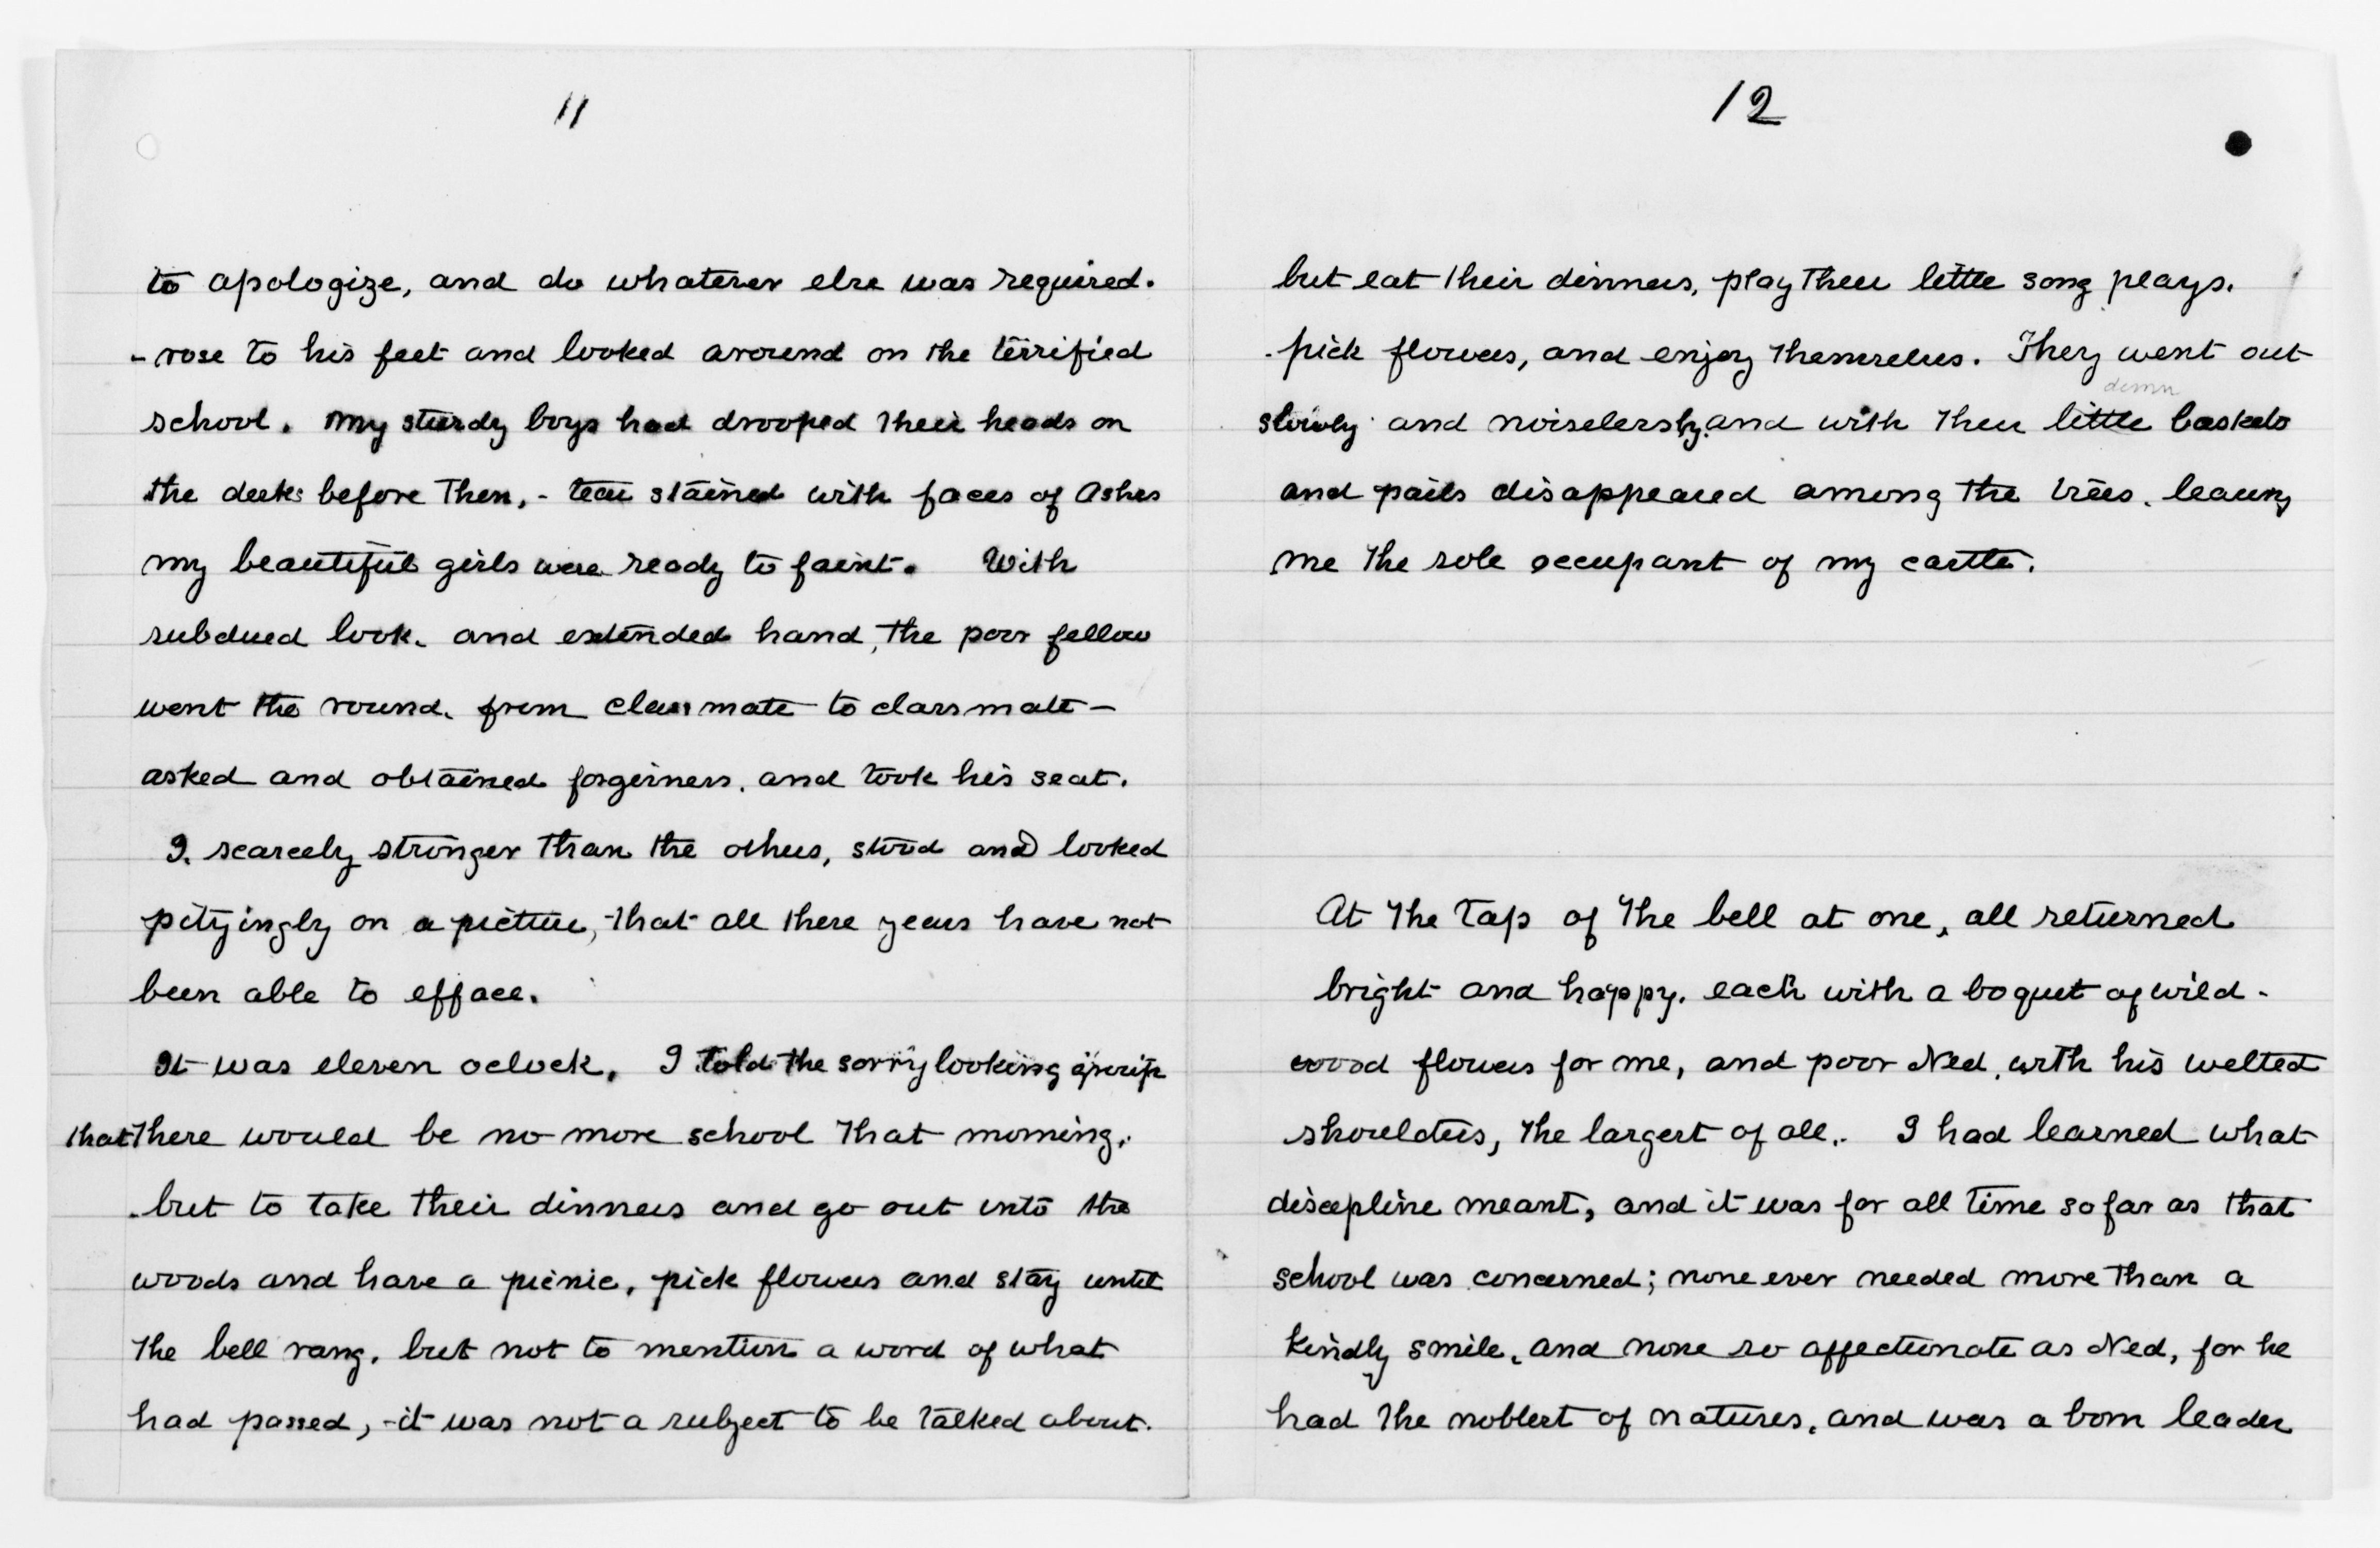 11
to apologize, and do whatever else was required.
- rose to his feet and looked around on the terrified
school. My sturdy boys had drooped their heads on
the desks before them, - tear stained with faces of Ashes
my beautiful girls were ready to faint. With
subdued look. and extended hand, the poor fellow
went the round. from classmate to classmate -
asked and obtained forgivness. and took his seat.
I. scarcely stronger than the others, stood and looked
pityingly on a picture, - that all these years have not
been able to efface.
It was eleven oclock. I told the sorry looking group
that there would be no more school that morning.
but to take their dinners and go out into the
woods and have a picnic, pick flowers and stay until
the bell rang. but not to mention a word of what
had passed, - it was not a subject to be talked about.
12
but eat their dinners, play their little song plays.
pick flowers, and enjoy themselves. They went out
dinn
slowly and noiselessly. and with their little baskets
and pails disappeared among the trees. leaving
me the sole occupant of my castle.
At the tap of the bell at one, all returned
bright and happy. each with a boquet of wild-
wood flowers for me, and poor Ned. with his welted
shoulders, the largest of all. I had learned what
discipline meant, and it was for all time so far as that
school was concerned; none ever needed more than a
kindly smile. and none so affectionate as Ned, for he
had the noblest of natures. and was a born leader